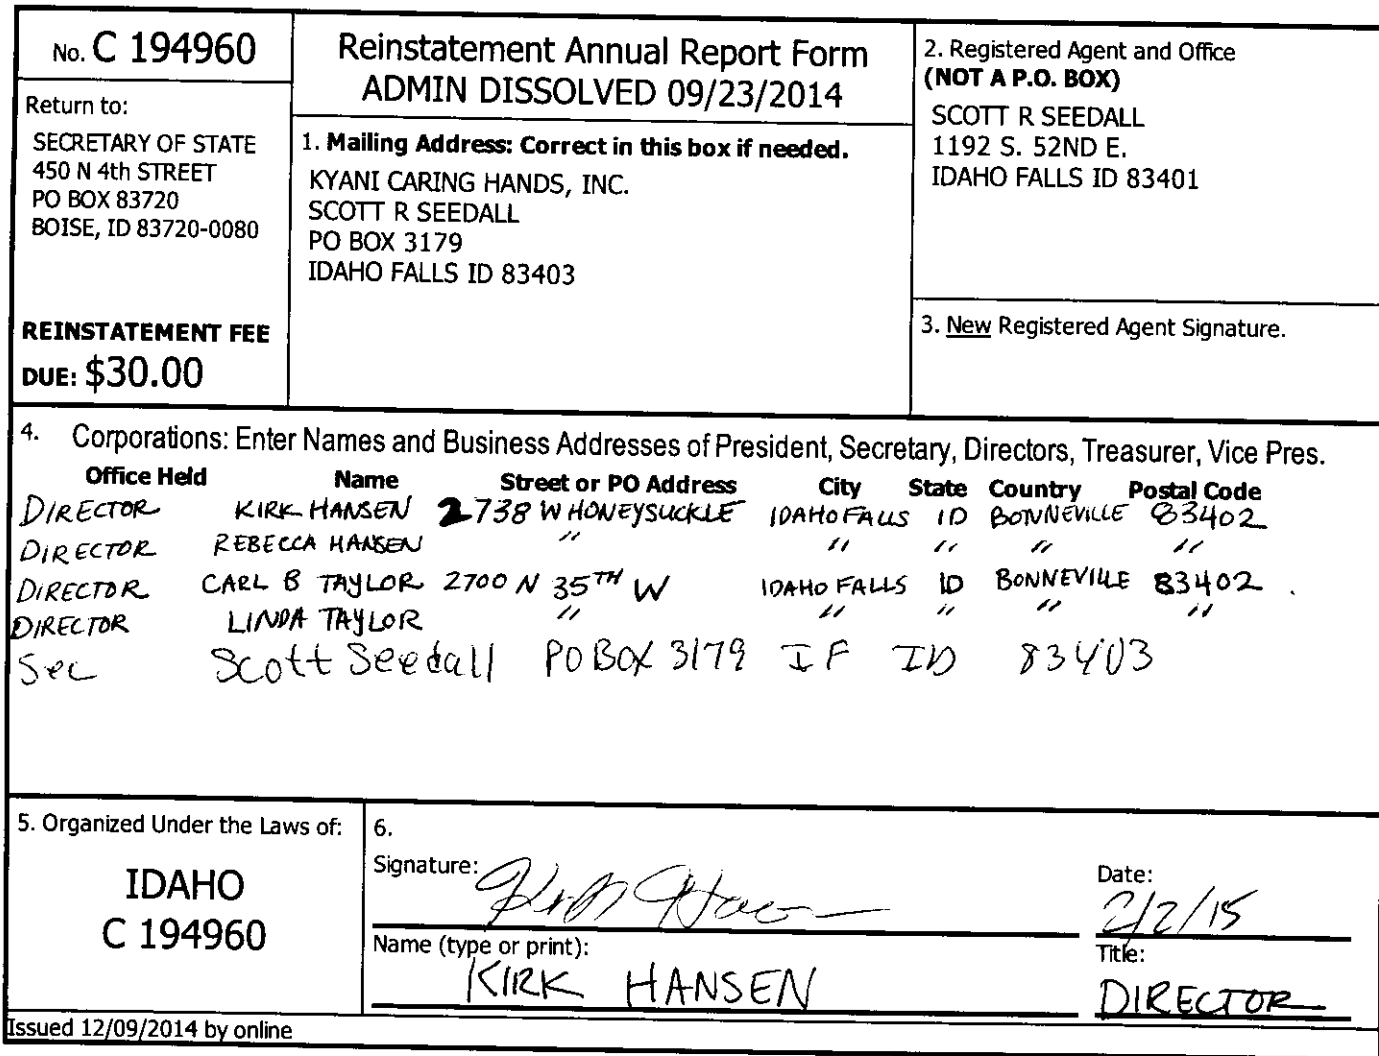 No. C 194960
Return to:
SECRETARY OF STATE
450 N 4th STREET
PO BOX 83720
BOISE, ID 83720-0080
REINSTATEMENT FEE
DUE: $30.00
Reinstatement Annual Report Form
ADMIN DISSOLVED 09/23/2014
1. Mailing Address: Correct in this box if needed.
KYANI CARING HANDS, INC.
SCOTT R SEEDALL
PO BOX 3179
IDAHO FALLS ID 83403
2. Registered Agent and Office
(NOT A P.O. BOX)
SCOTT R SEEDALL
1192 S. 52ND E.
IDAHO FALLS ID 83401
3. New Registered Agent Signature.
4. Corporations: Enter Names and Business Addresses of President, Secretary, Directors, Treasurer, Vice Pres.
Office Held Name Street or PO Address City State Country Postal Code
DIRECTOR KIRK HANSEN 2738 W HONEYSUCKLE IDAHO FALLS ID BONNEVILLE 83402
DIRECTOR REBECCA HANSEN " " " " "
DIRECTOR CARL B TAYLOR 2700 N 35TH W IDAHO FALLS ID BONNEVILLE 83402
DIRECTOR LINDA TAYLOR " " " " "
Sec Scott Seedall PO BOX 3179 IF ID 83403
5. Organized Under the Laws of:
IDAHO
C 194960
6.
Signature: Kirk Hansen
Date:
2/2/15
Name (type or print):
KIRK HANSEN
Title:
DIRECTOR
Issued 12/09/2014 by online